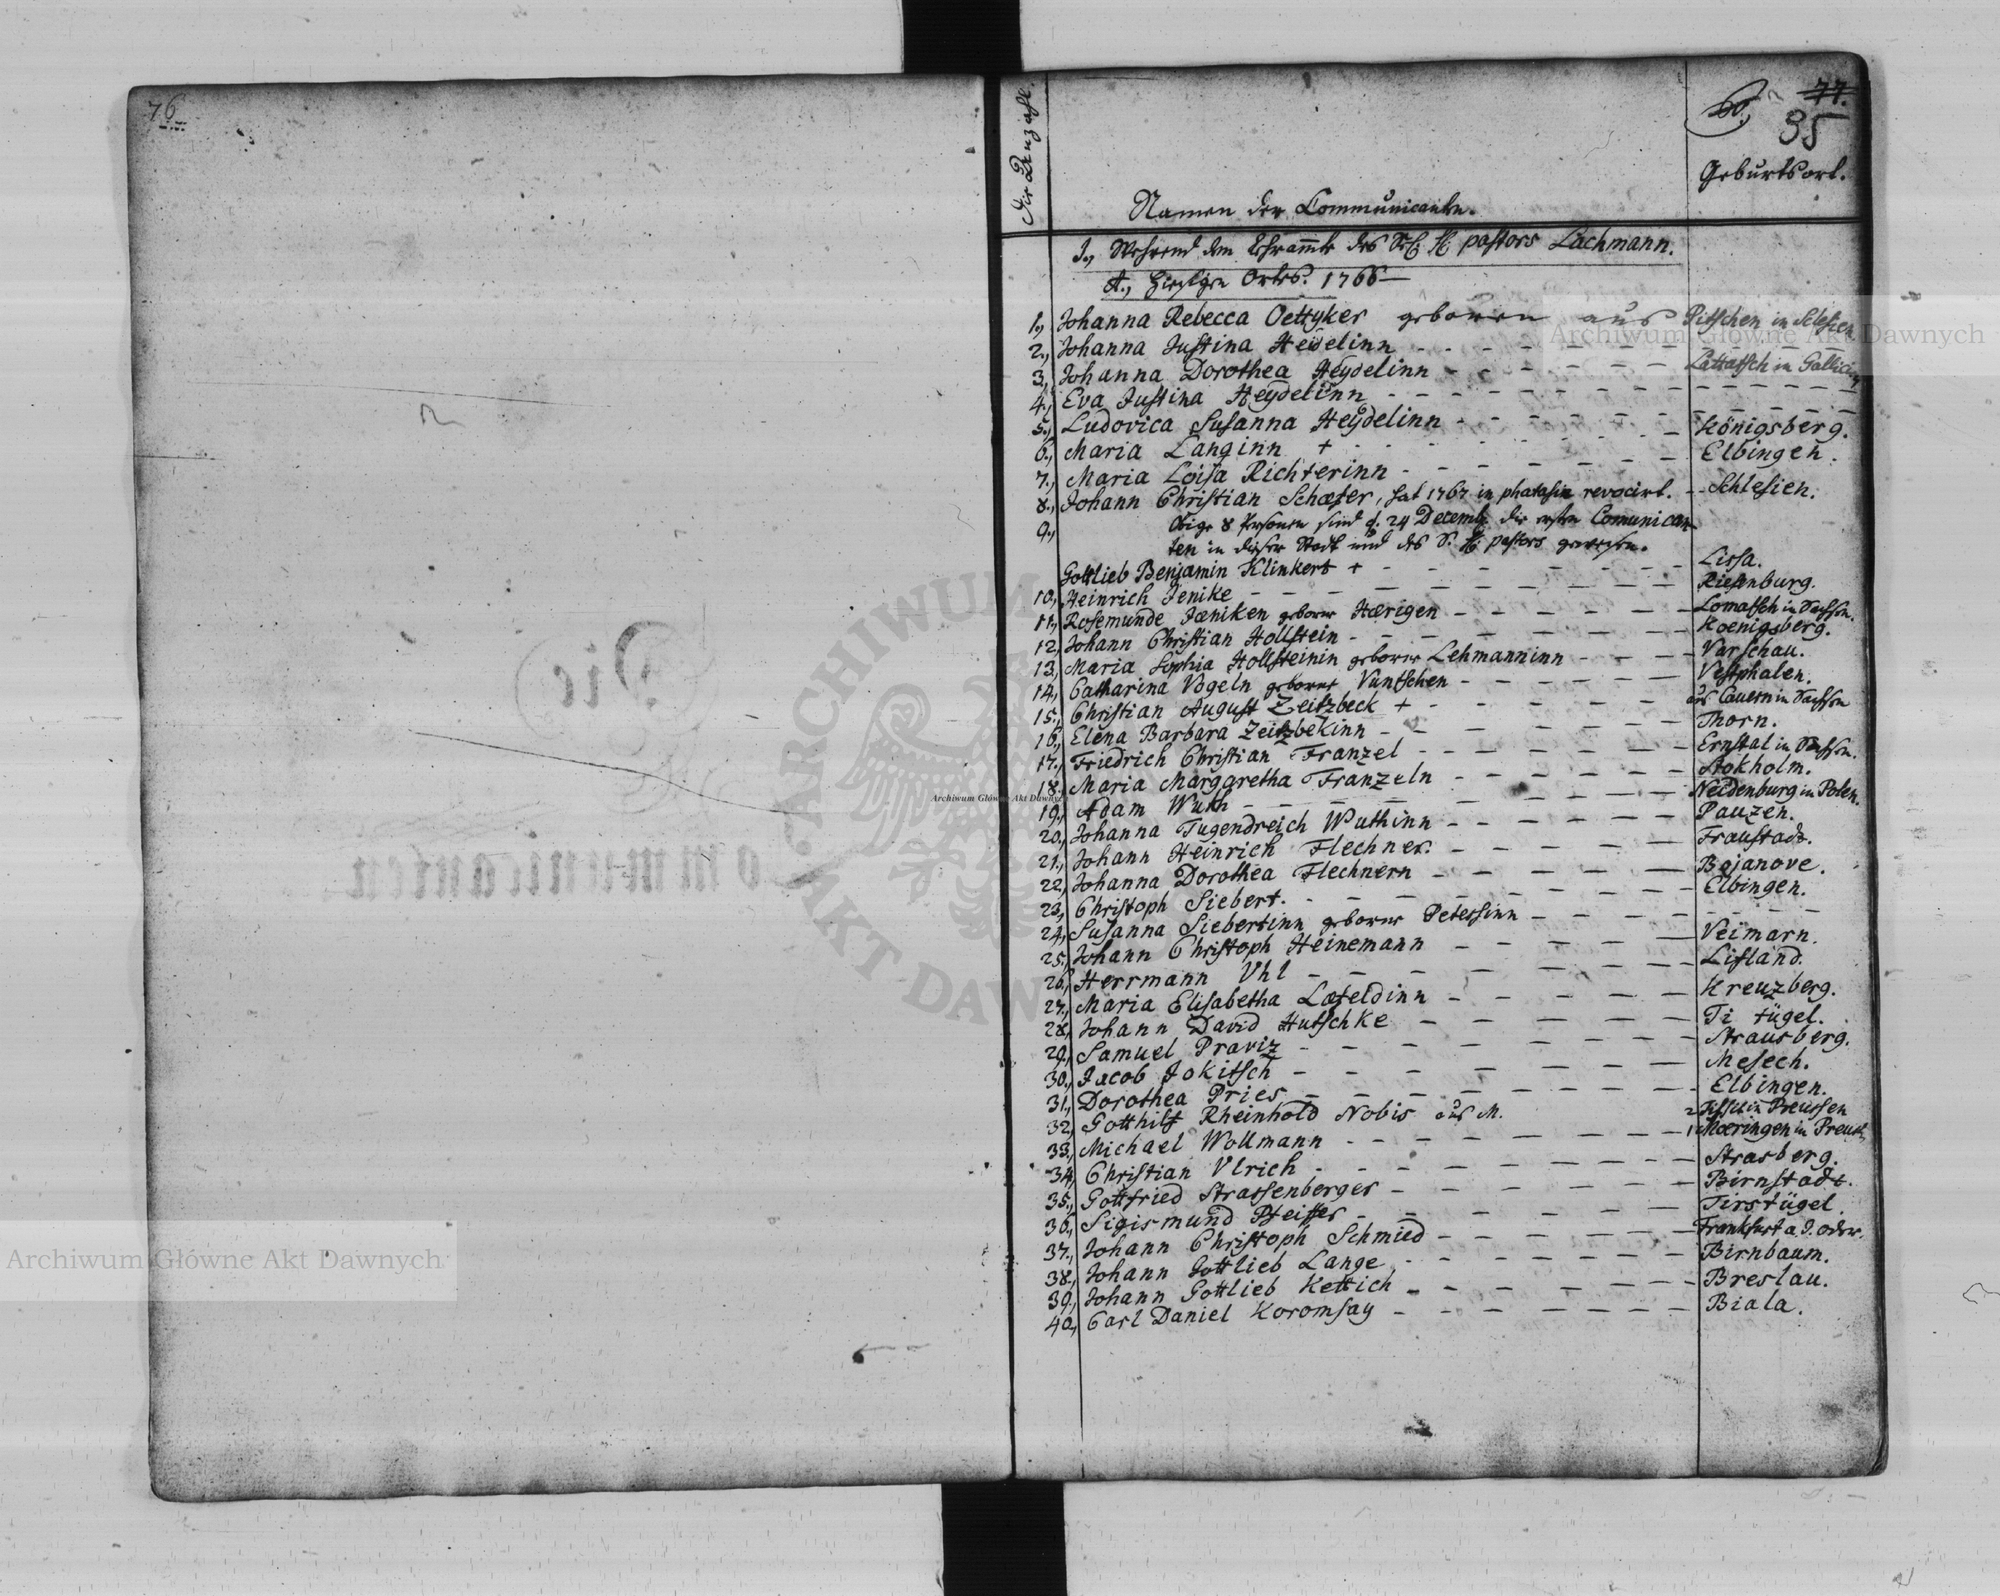 76
Die
Communicanten
77.
60.
35
Die Anzahl.
Namen der Communicanten.
Geburtsort.
I., Wehrend dem Lehramte des Sel. H. pastors Lachmann.
A., Hiesigen Ortes. 1766
1., Johanna Rebecca Oettyker geboren aus Pitschen in Schlesien
2., Johanna Justina Heidelinn
3., Johanna Dorothea Heydelinn Lattatsch in Gallicin
4., Eva Justina Heydelinn
5., Ludovica Susanna Heydelinn
6., Maria Langinn + Königsberg.
7., Maria Loisa Richterinn Elbingen.
8., Johann Christian Schæfer, hat 1767 in revocirt. Schlesien.
9., Obige 8 Personen sind d. 24 Decemb. die ersten Comunican
ten in dieser Stadt und des S. H. pastors gewesen.
Gottlieb Benjamin Klinkert + Lissa.
10., Heinrich Jenike Riesenburg.
11., Rosemunde Jæniken geborne Hærigen Lomatsch in Sachsen.
12., Johann Christian Hollstein Koenigsberg.
13., Maria Sophia Hollsteinin geborne Lehmanninn Varschau.
14., Catharina Vogeln geborne Vuntschen Vestphalen.
15., Christian August Zeitzbeck + aus Cauern in Sachsen
16., Elena Barbara Zeitzbekinn Thorn.
17., Friedrich Christian Franzel Ernstal in Sachsen.
18., Maria Margaretha Franzeln Stokholm.
19., Adam Wuth Neidenburg in Polen.
20., Johanna Tugendreich Wuthinn Pauzen.
21., Johann Heinrich Flechner. Fraustadt.
22., Johanna Dorothea Flechnern Bojanove.
23., Christoph Siebert. Elbingen.
24., Susanna Siebertinn geborne Petersinn
25., Johann Christoph Heinemann Veimarn.
26., Herrmann Vhl Lifland.
27., Maria Elisabetha Læfeldinn Kreuzberg.
28., Johann David Hutschke Ti tügel.
29., Samuel Praviz Strausberg.
30., Jacob Jokitsch Mesech.
31., Dorothea Pries Elbingen.
32., Gotthilf Rheinhold Nobis aus M. in Preussen
33., Michael Wollmann Mæringen in Preuss.
34., Christian Vlrich Strasberg.
35., Gottfried Strassenberger Birnstadt.
36., Sigismund Pfeiffer Tirstügel.
37., Johann Christoph Schmied Frankfurt a. d. Oder.
38., Johann Gottlieb Lange Birnbaum.
39., Johann Gottlieb Kettich Breslau.
40., Carl Daniel Koromsay Biala.
Archiwum Główne Akt Dawnych
Archiwum Główne Akt Dawnych
Archiwum Główne Akt Dawnych